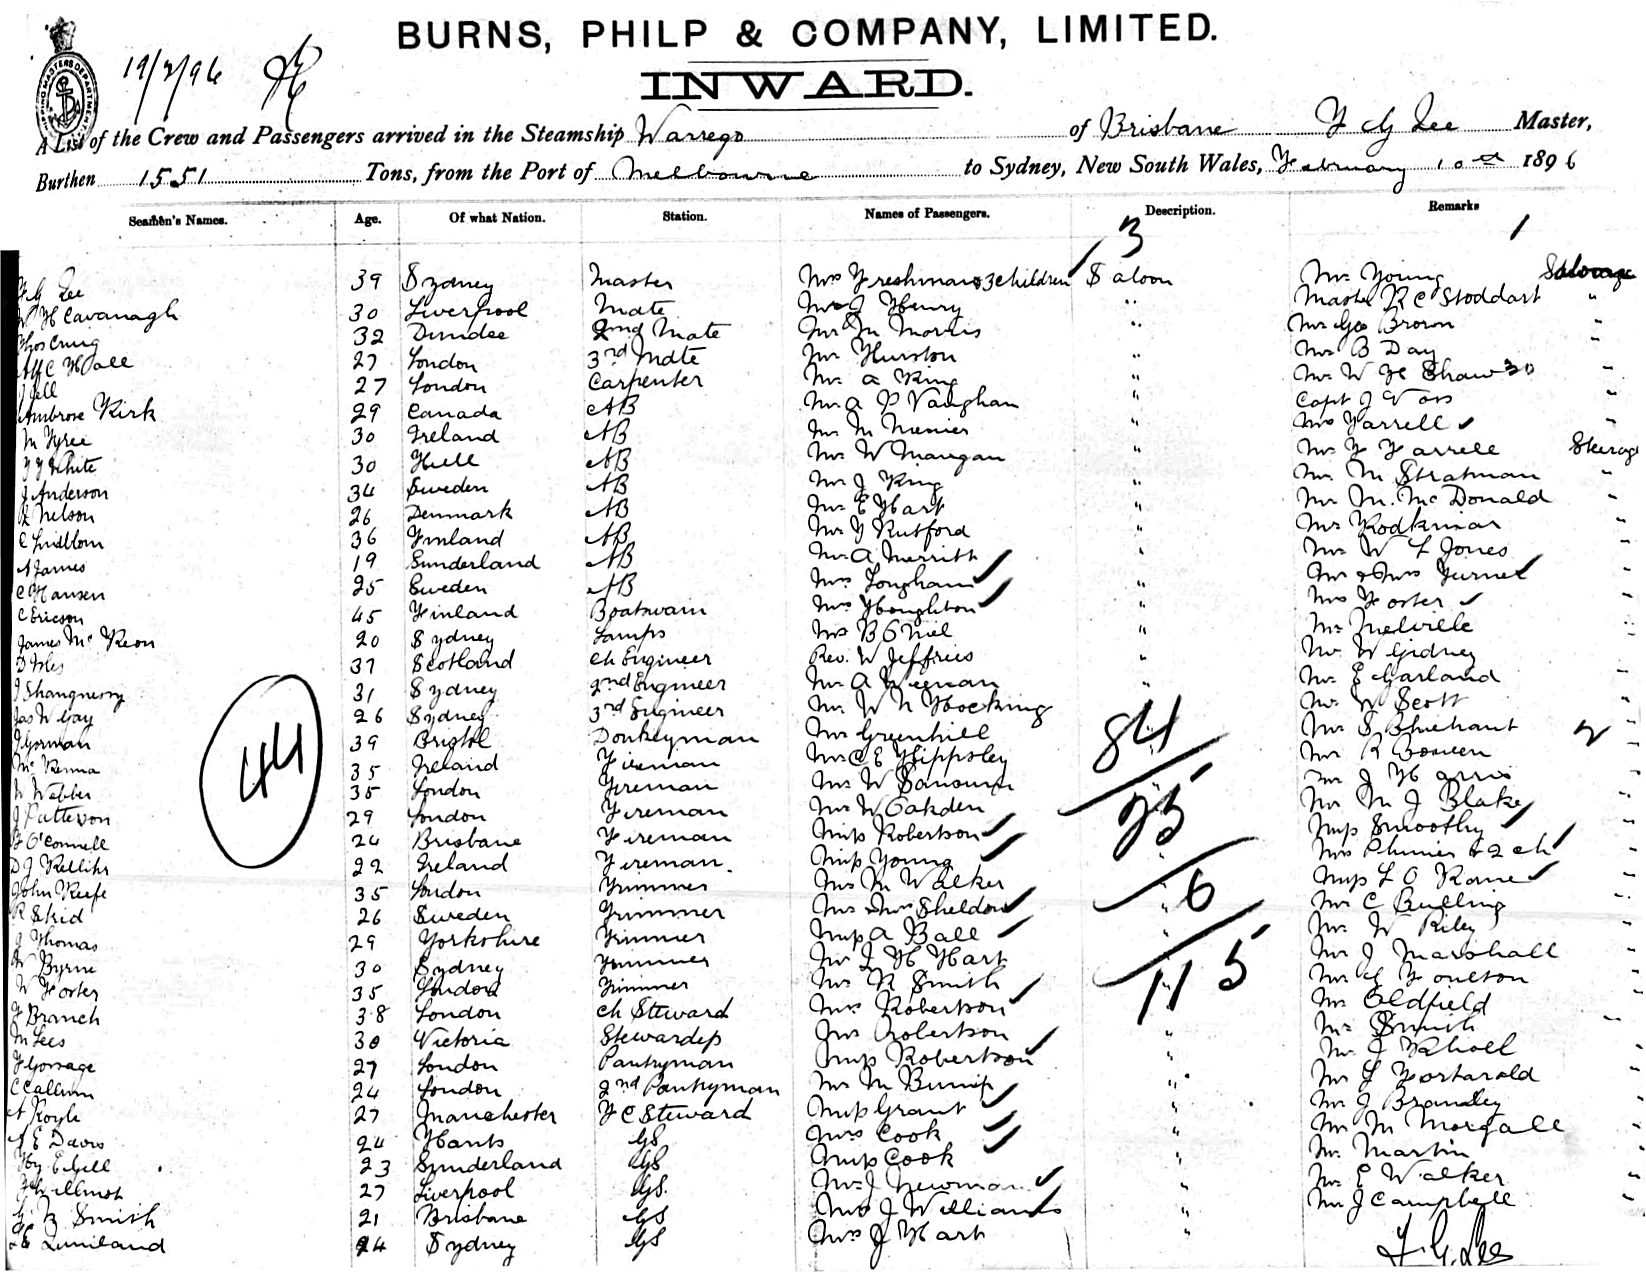 BURNS, PHILP & COMPANY, LIMITED.
INWARD.
19/2/96
A List of the Crew and Passengers arrived in the Steamship Warrego of Brisbane F G Lee Master,
Burthen 1551 Tons, from the Port of Melbourne to Sydney, New South Wales, February 10th 1896
Seamen's Names. Age. Of what Nation. Station. Names of Passengers. Description. Remarks
3 1
F G Lee 39 Sydney Master Mrs Freshman & 3 children Saloon Mr Young
W H Cavanagh 30 Liverpool Mate Mr J Henry " Master R C Stoddart "
Thos Craig 32 Dundee 2nd Mate Mr M Morris " Mr Geo Brown "
A H C Hall 27 London 3rd Mate Mr Hurston " Mr B Day "
J Jell 27 London Carpenter Mr A King " Mr W H Shaw "
Ambrose Kirk 29 Canada AB Mr A P Vaughan " Capt J Voss "
M Tyree 30 Ireland AB Mr M Menier " Mrs Farrell "
White 30 Hull AB Mr W Mangan " Mr F Farrell Steerage
J Anderson 34 Sweden AB Mr J King " Mr M Stratman "
Nelson 26 Denmark AB Mr E Hart " Mr M. McDonald "
C Lindblom 36 Finland AB Mr F Rutford " Mr "
A James 19 Sunderland AB Mr A Merrith " Mr W L Jones "
C Hansen 25 Sweden AB Mrs Longham " Mr & Mrs Turner "
C Ericson 45 Finland Boatswain Mrs Houghton " Mrs Foster "
James McKeon 20 Sydney Lamps Mr B O'Niel " Mr Melville "
D Isles 37 Scotland Ch Engineer Rev. W Jeffries " Mr W Gidney "
J Shangnessy 31 Sydney 2nd Engineer Mr A Weenan " Mr E Garland "
Jas W Gay 26 Sydney 3rd Engineer Mr W N Hocking Mr W Scott "
J Gorman 39 Bristol Donkeyman Mr Greenhill Mr S
McKenna 35 Ireland Fireman Mr C E Hippsley Mr R Bowen
W Webber 35 London Fireman Mr W Sansum Mr J Harris
J Patterson 29 London Fireman Mr W Oakden Mr M J Blake
O'Connell 24 Brisbane Fireman Miss Robertson Miss Smoothy
D J Kelliher 22 Ireland Fireman Miss Young Mrs & 2 ch
John Keefe 35 London Trimmer Mr M Walker Miss L O Kane
R Skid 26 Sweden Trimmer Mr & Mrs Sheldon Mr C Bulling
Thomas 29 Yorkshire Trimmer Miss A Ball Mr W Riley
W Byrne 30 Sydney Trimmer Mr J H Hart Mr J Marshall
W Foster 35 London Trimmer Mr R Smith Mr G Foulton
F Branch 38 London Ch Steward Mrs Robertson Mr Oldfield
M Lees 30 Victoria Stewardess Mr Robertson " Mr Smith
F Gorrage 27 London Pantryman Miss Robertson " Mr J Kholl
C Callum 24 London 2nd Pantryman Mr M Bunip " Mr L
A Royle 27 Manchester F C Steward Miss Grant " Mr J Bramley
A E Davis 24 Hants GS Mrs Cook " Mr M Morgall
Hy E Gill 23 Sunderland GS Miss Cook " Mr Martin
Willmot 27 Liverpool GS Mr J Newman " Mr E Walker
G B Smith 21 Brisbane GS Mrs J Williams " Mr J Campbell
Quiniland 24 Sydney GS Mrs J Hart "
44
84
25
6
115
F. G. Lee